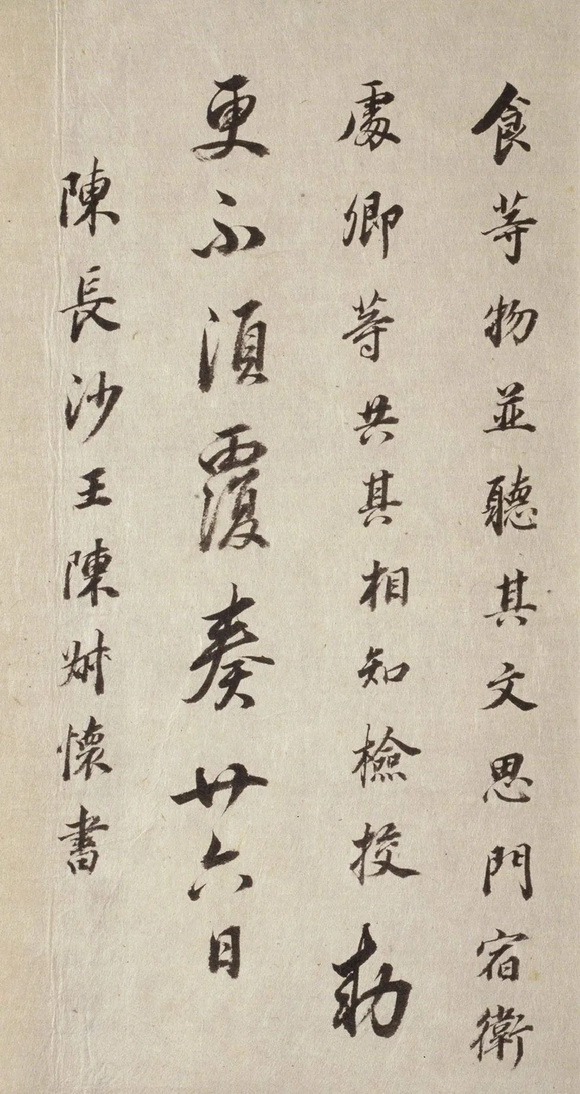 食等物並聽其文思門宿衛
處卿等共其相知檢挍勅
更不須覆奏廿六日
陳長沙王陳叔懷書